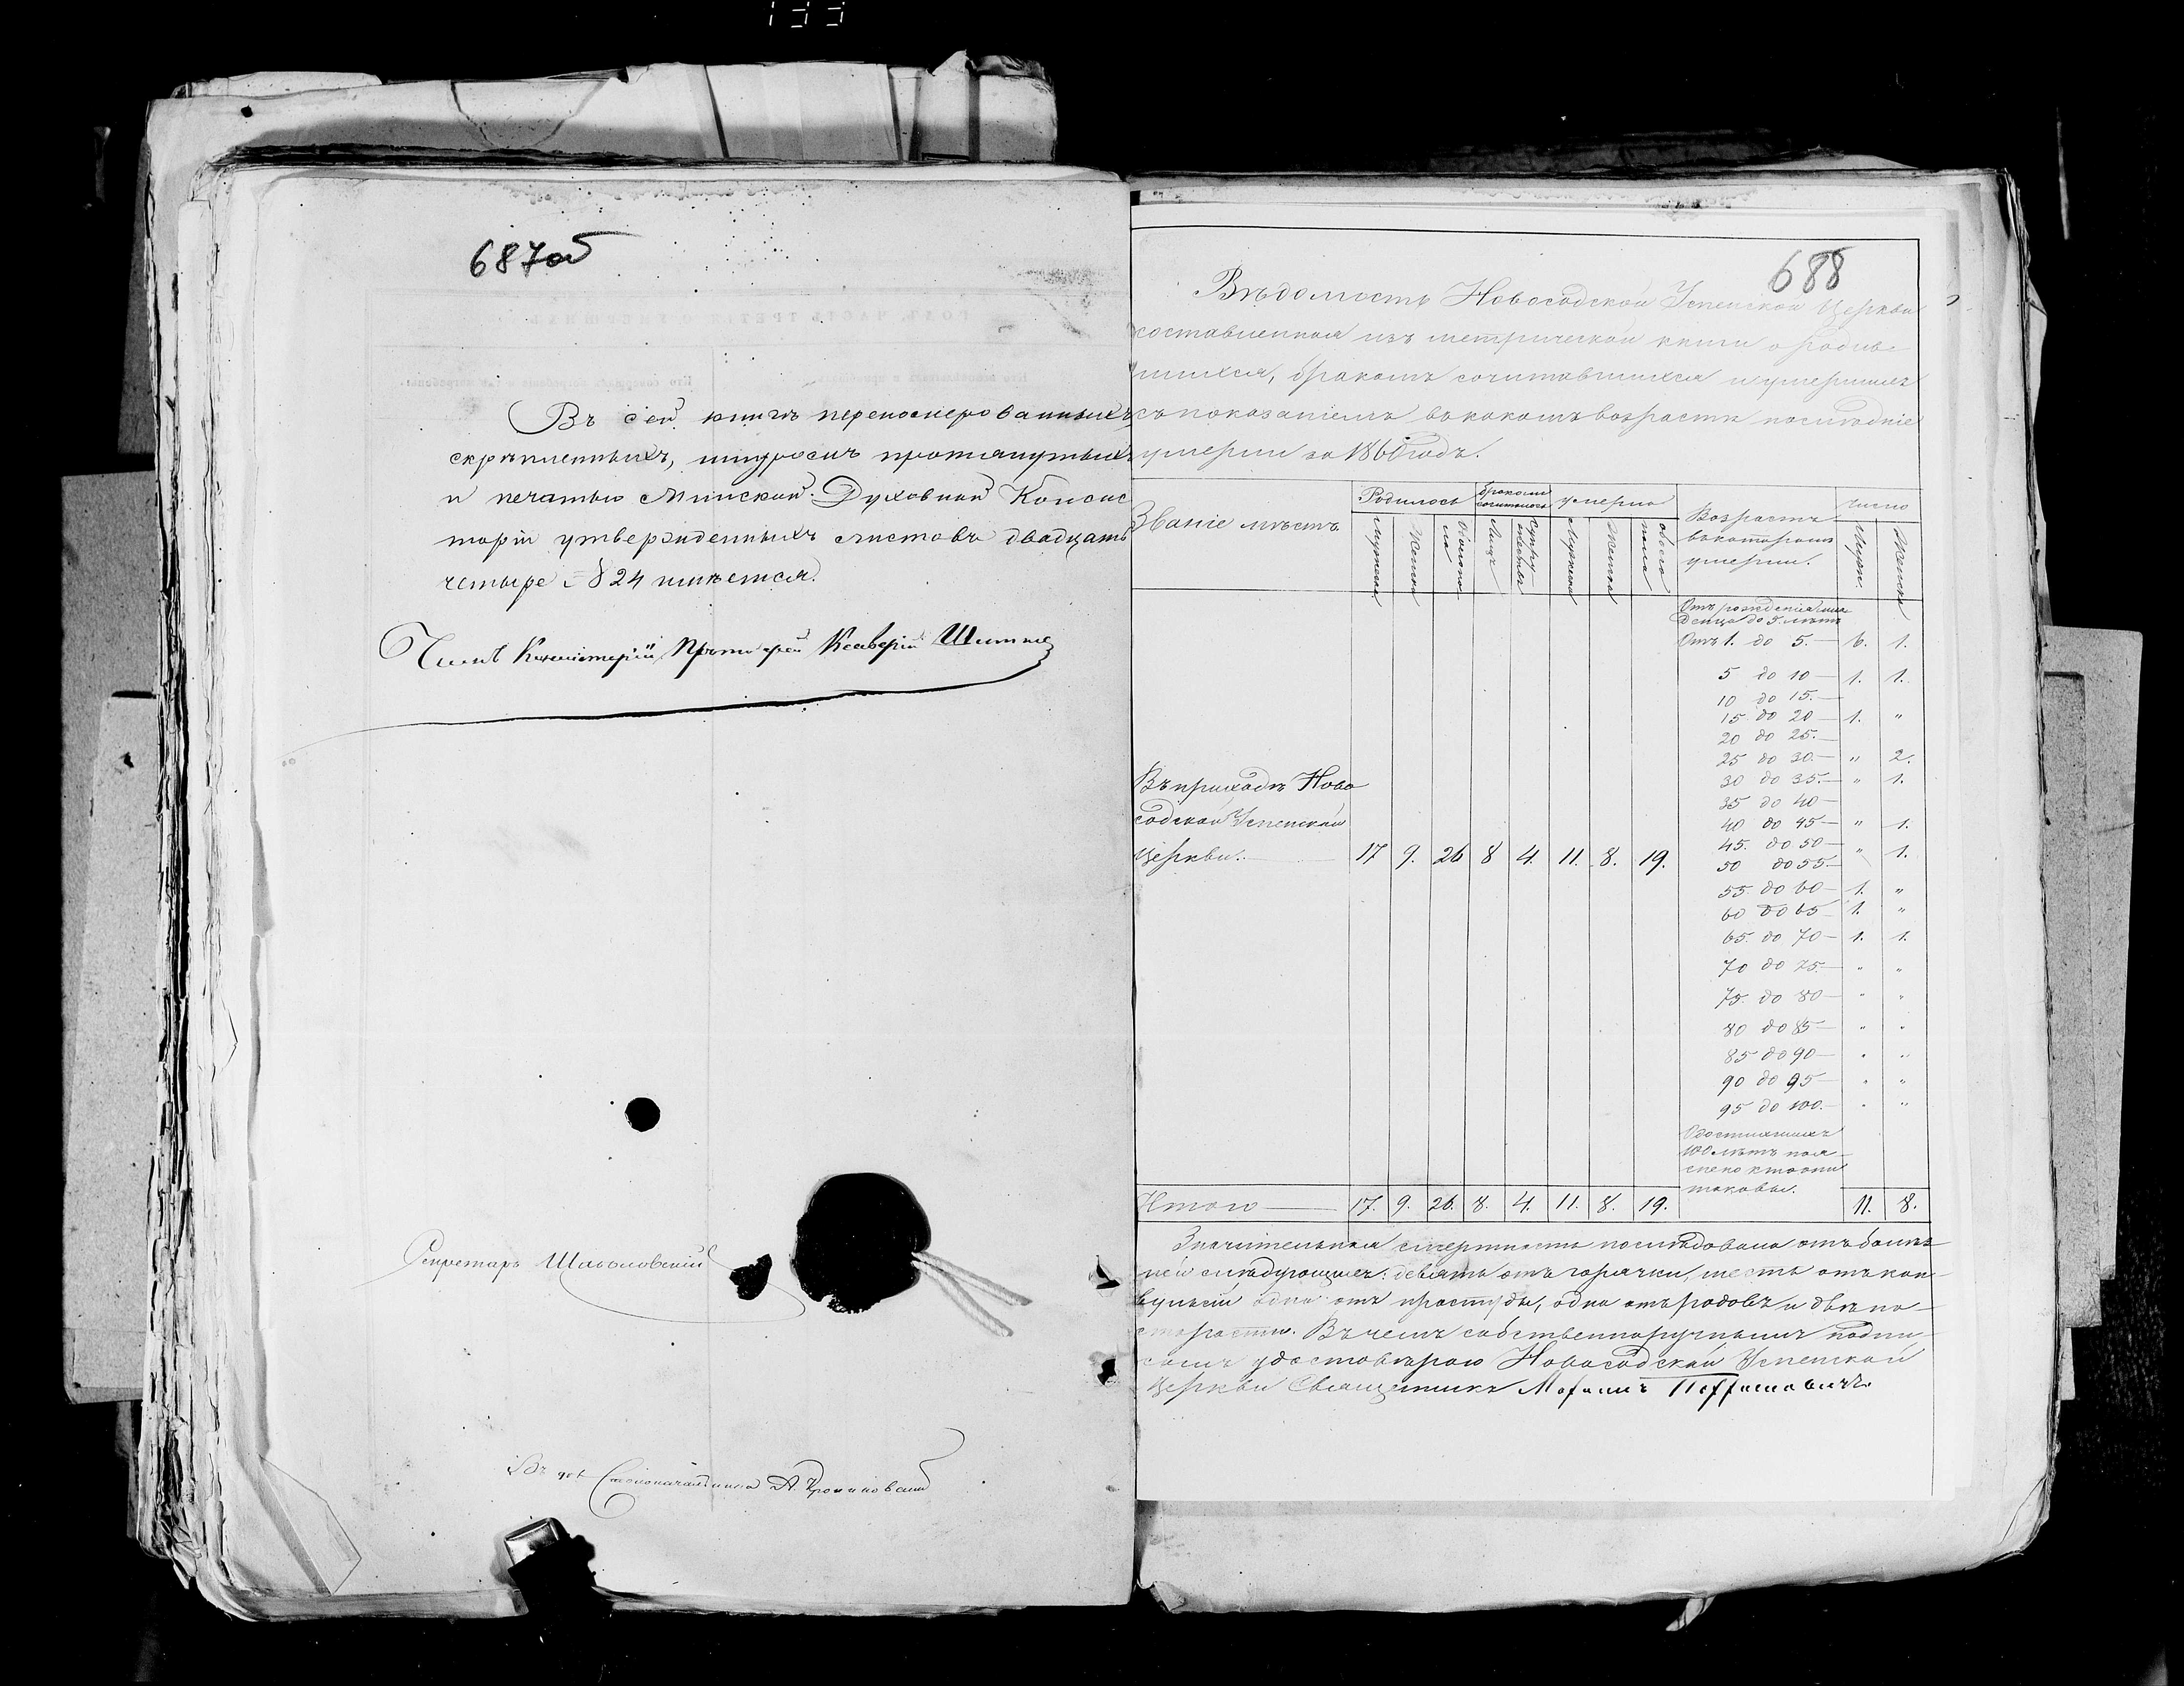 133
687об
Въ сей книгѣ переномерованныхъ
скрѣпленныхъ, шнуромъ протянутыхъ
и печатью Минской Духовной Консис
торіи утвержденныхъ листовъ двадцать
четыре № 24 имѣется.
Членъ Консисторіи Протоіерей
Секретарь
Столоначальника А.
688
Вѣдомость Новосадской Успенской Церкви
составленная изъ метрической книги о родив-
шихся, бракомъ сочитавшихся и умершихъ
съ показаніемъ въ какомъ возрастѣ послѣдніе
умерли за 1860 годъ.
Званіе мѣстъ
Родилось
Бракомъ сочиталось
умерло
Возрастъ въ которомъ умерли.
число
Мужеска
Женска
Обоего пола
Лицъ
Супружествъ
Мужеска
Женска
обоего пола
Мужес.
Женска
Отъ рожденія мла
денца до 5. лѣтъ
Отъ 1. до 5. — 6. 1.
5 до 10 — 1. 1.
10 до 15. —
15 до 20 — 1. "
20 до 25. —
25 до 30. — " 2.
30 до 35. — " 1.
35 до 40 —
40 до 45 — " 1.
45. до 50 —
50 до 55. — " 1.
55. до 60 — 1. "
60 до 65 — 1. "
65. до 70 — 1. 1.
70 до 75. — " "
75. до 80 — " "
80 до 85 — " "
85 до 90 — " "
90 до 95 — " "
95 до 100. — " "
О достигшихъ
100 лѣтъ поя-
снено кто они
таковы.
Въ приходѣ Ново
садской Успенской
Церкви. — 17 9. 26 8 4. 11. 8. 19.
Итого — 17. 9. 26. 8. 4. 11. 8. 19. 11. 8.
Значительная смертность послѣдовала отъ болѣз-
ней слѣдующихъ: девять отъ горячки, шесть отъ кон-
вульсій одна отъ простуды, одна отъ родовъ и двѣ по
старости. Въ чемъ собственноручнымъ подпи-
сомъ удостовѣряю Новосадской Успенской
Церкви Священникъ